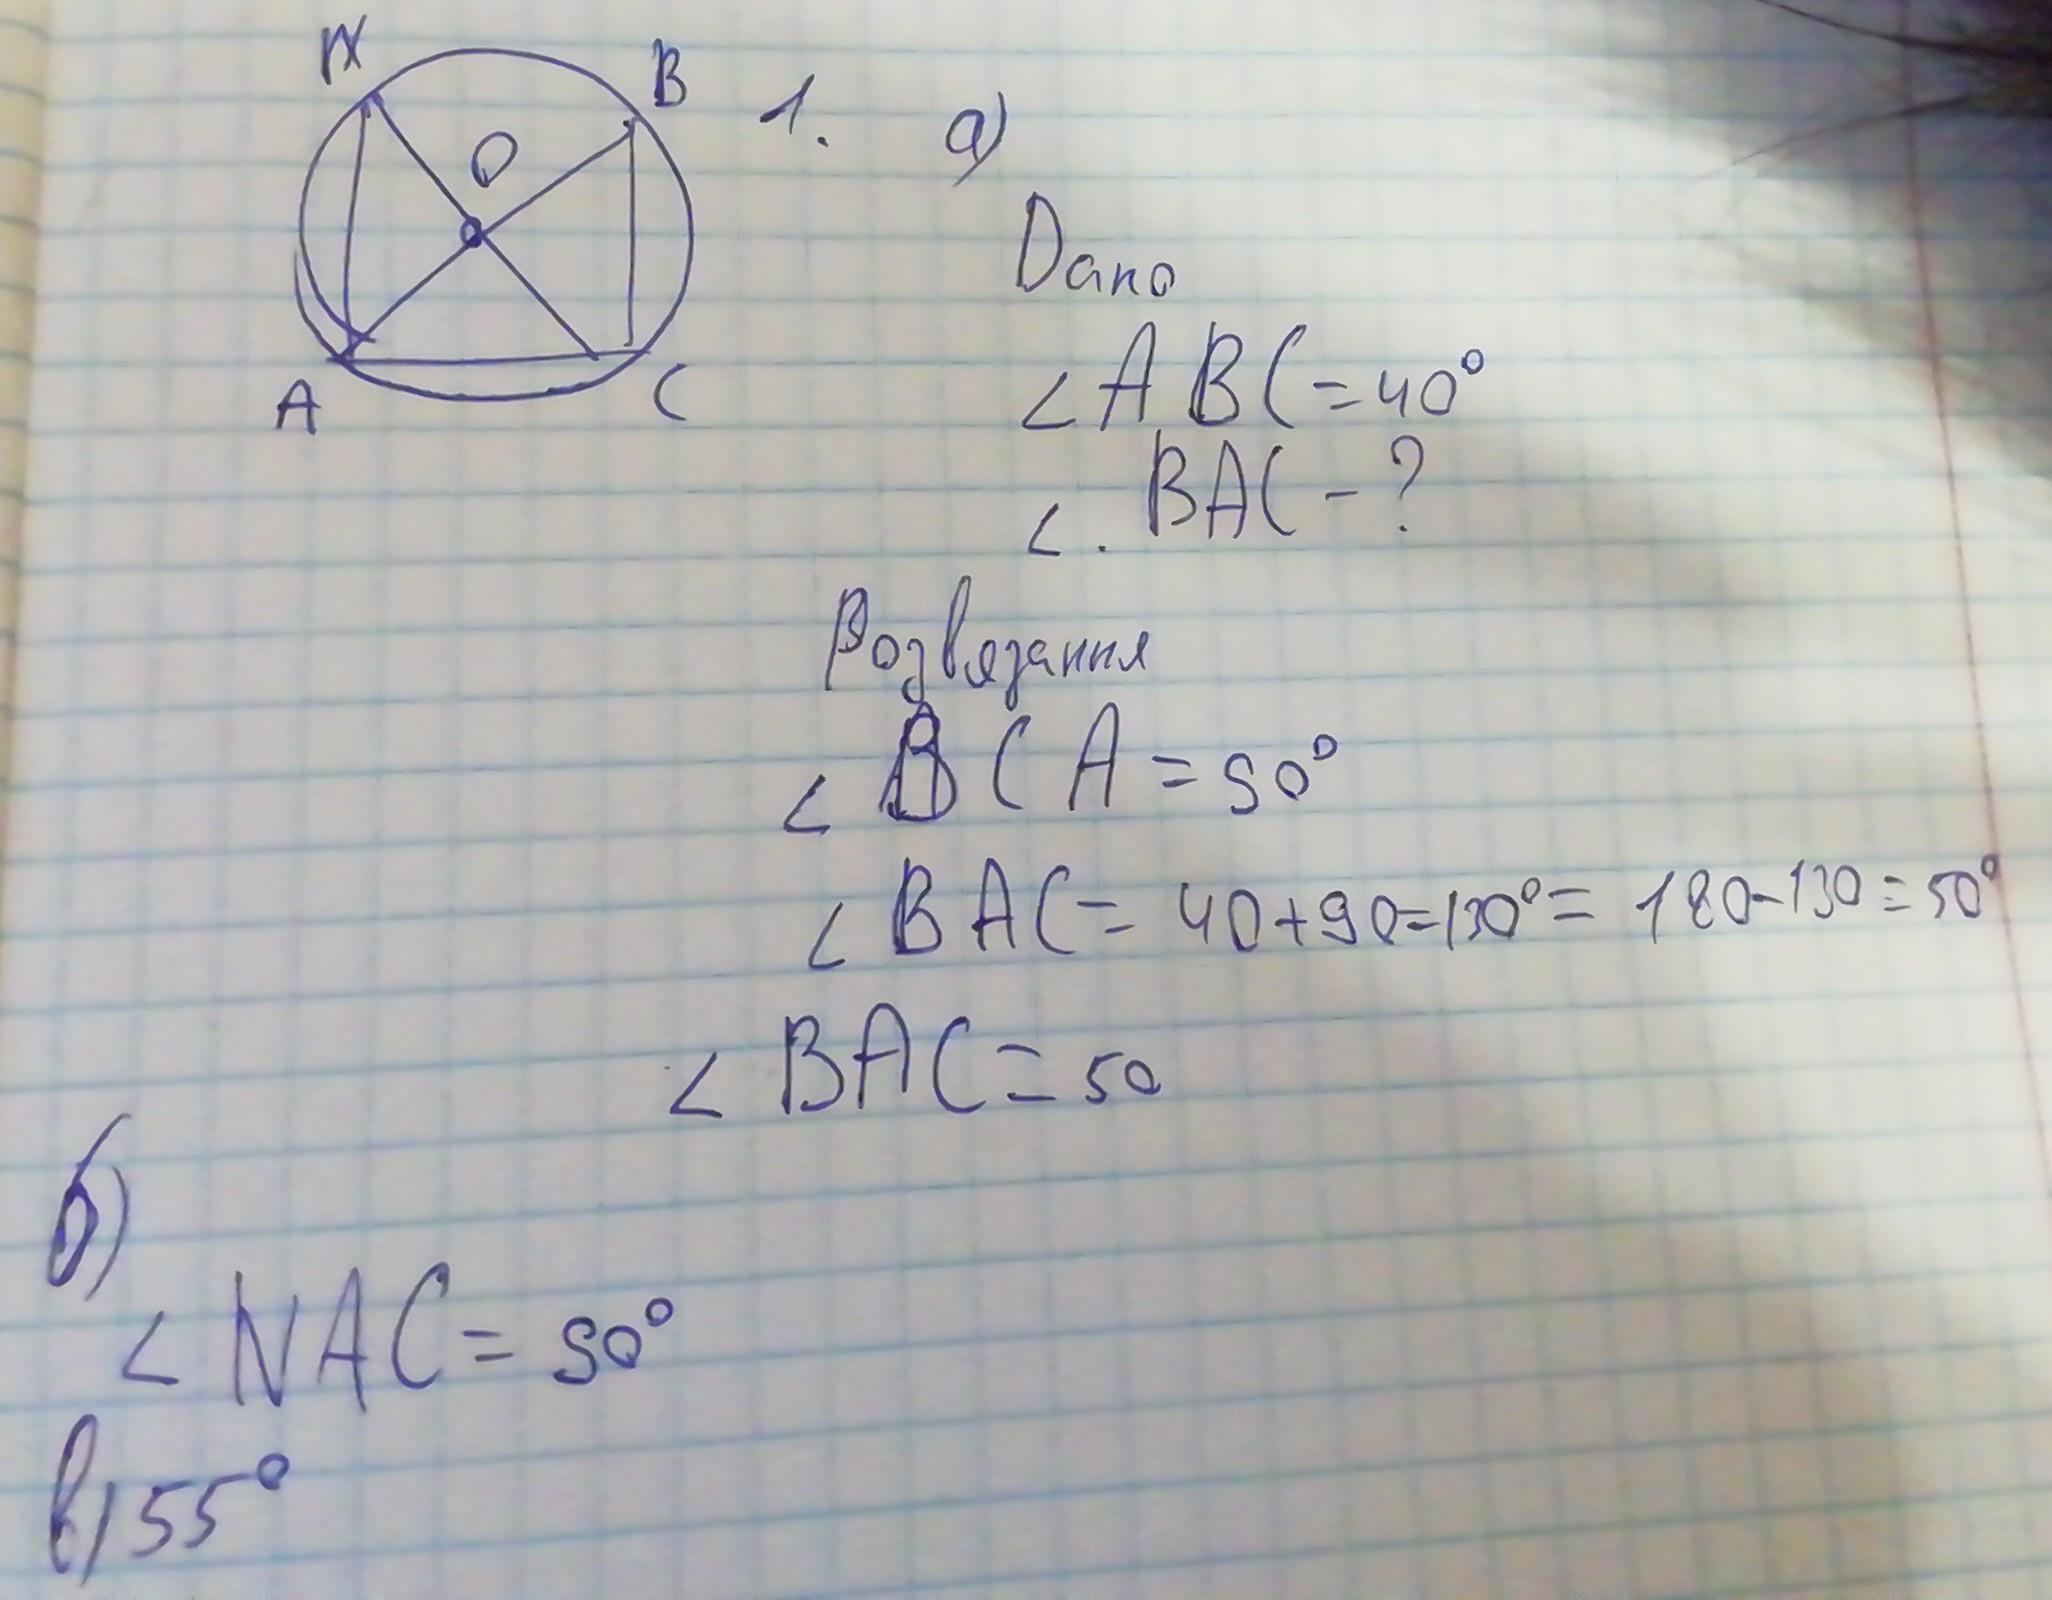 N B
O
A C
1. а)
Дано
∠ABC=40°
∠.BAC-?
Розвязання
∠BCA=90°
∠BAC=40+90=130°=180-130=50°
∠BAC=50
б)
∠NAC=90°
в)55°